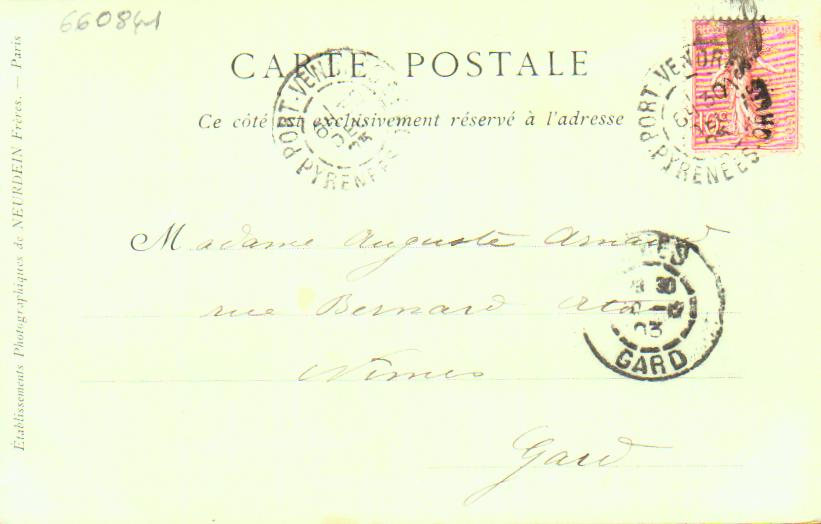 660841
CARTE POSTALE
Ce côté est exclusivement réservé à l'adresse
PORT-VEND
PYRENEES
PORT VENDR
PYRENEES-O
Madame Auguste Arnaud
rue Bernard
Nîmes
Gard
30
03
GARD
Établissements Photographiques de NEURDEIN Frères. — Paris